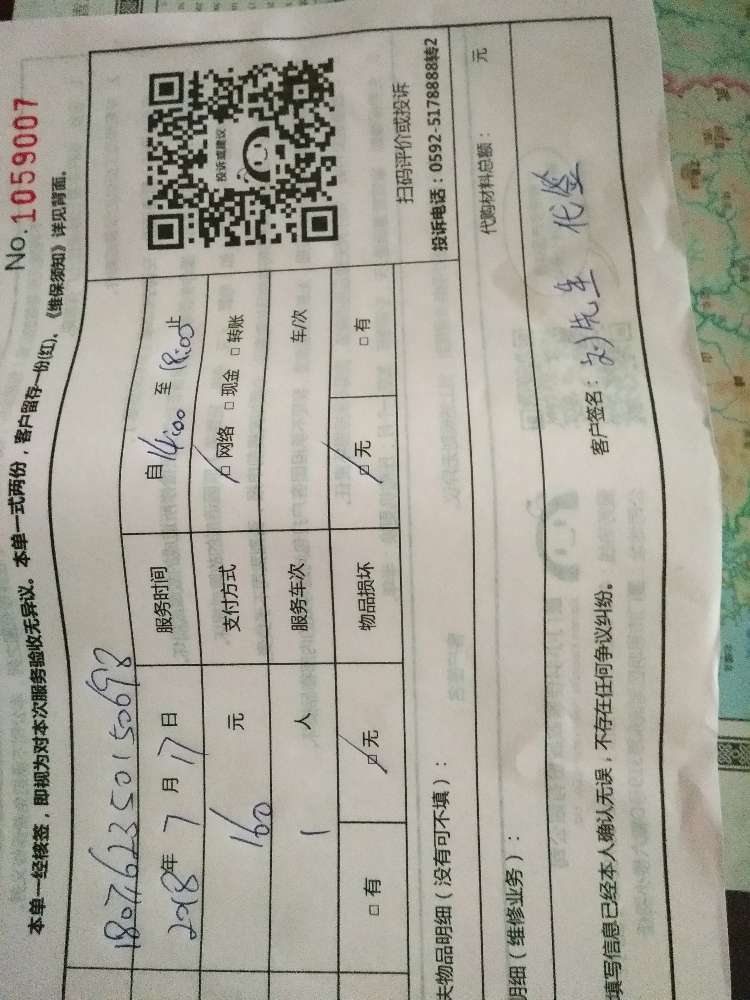 No. 1059007
本单一经核签，即视为对本次服务验收无异议。本单一式两份，客户留存一份(红)、《维保须知》详见背面。
投诉或建议
2018年 7 月 17 日 服务时间 自 14:00 至 18:00 止
160 元 支付方式 □ 网络 □ 现金 □ 转账
1 人 服务车次 车/次
□ 有 □ 无 物品损坏 □ 无 □ 有
扫码评价或投诉
投诉电话：0592-5178888转2
物品明细（没有可不填）：
代购材料总额： 元
明细（维修业务）：
填写信息已经本人确认无误，不存在任何争议纠纷。 客户签名：刘先生 代签